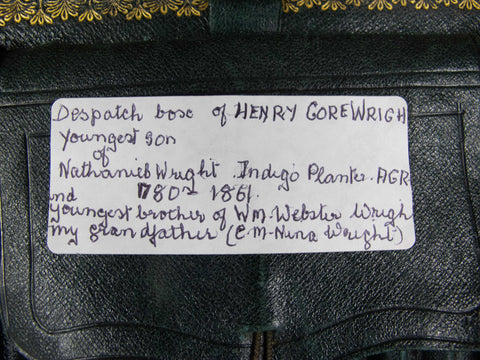 Despatch box of HENRY GOREWRIGH
Youngest son
of
Nathaniel Wright . Indigo Planter. AGR
nd 1780 - 1861.
youngest brother of WM. Webster Wrigh
my grandfather (E.M-Nina Wright)